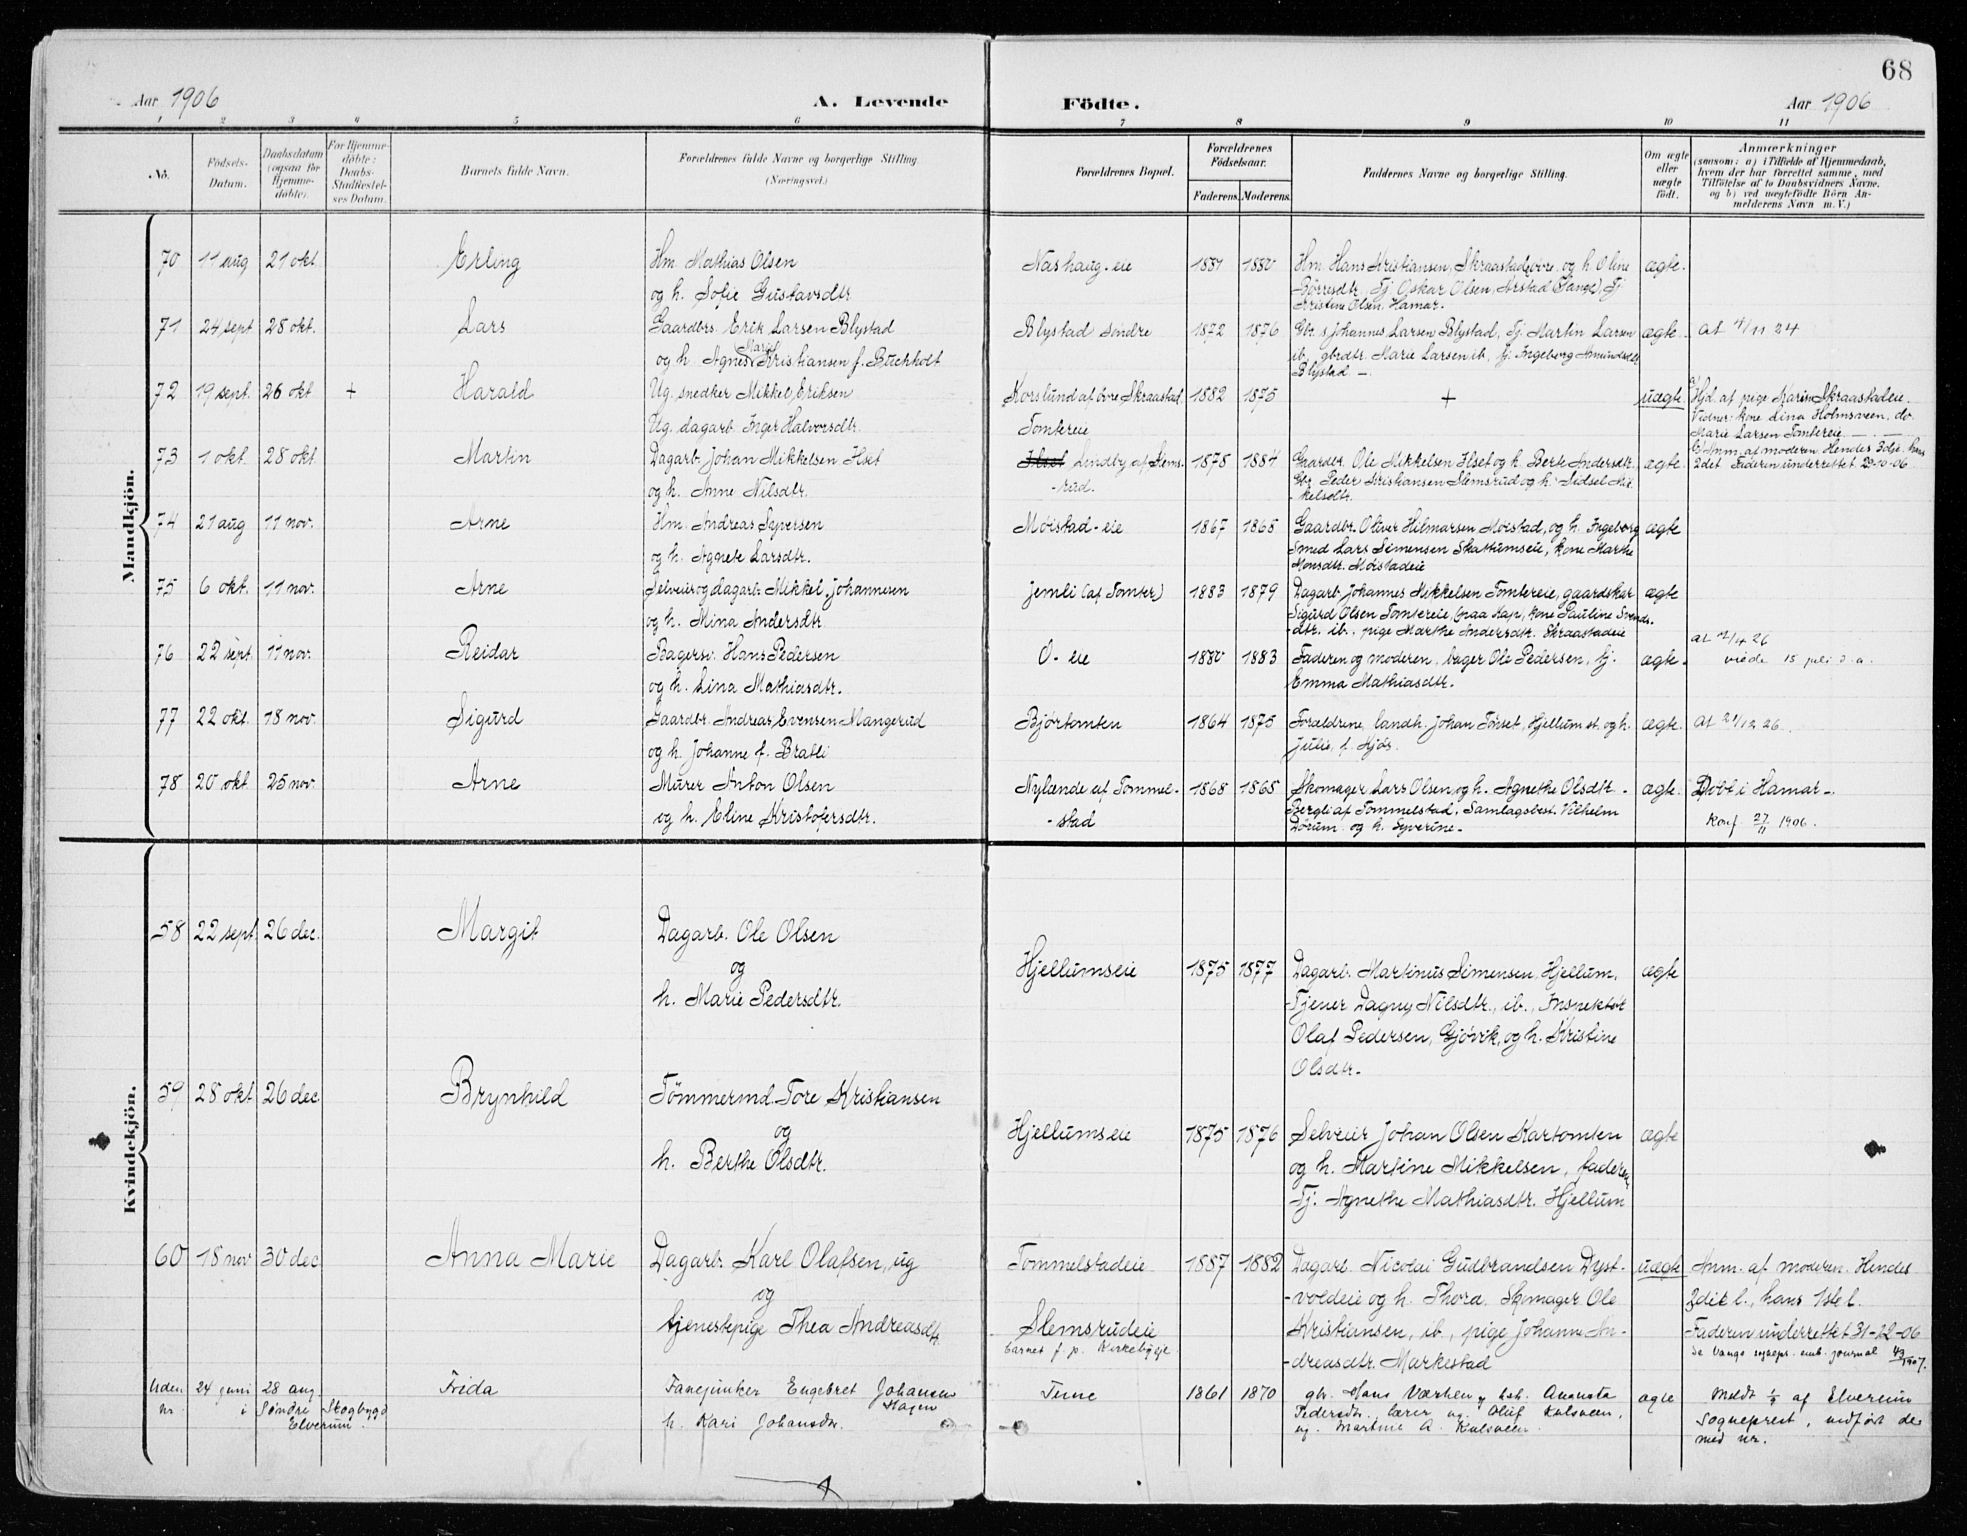 68
Aar 1906 A. Levende Födte. Aar 1906
1 2 3 4 5 6 7 8 9 10 11
No.
Födsels-Datum.
Daabsdatum (ogsaa for Hjemmedöbte).
For Hjemmedöbte: Daabs-Stadfæstelses Datum.
Barnets fulde Navn.
Forældrenes fulde Navne og borgerlige Stilling. (Næringsvei.)
Forældrenes Bopæl.
Forældrenes Födselsaar.
Faderens. Moderens.
Faddernes Navne og borgerlige Stilling.
Om ægte eller uægte födt.
Anmærkninger
(saasom: a) i Tilfælde af Hjemmedaab,
hvem der har forrettet samme, med
Tilföielse af to Daabsvidners Navne,
og b) ved uægtefödte Börn An-
melderens Navn m. V.)
Mandkjön.
70 11 aug 21 okt Erling Hm. Mathias Olsen Nashaug-eie 1881 1880 Hm. Hans Kristiansen, Skraastad övre, og h. Oline ægte.
og h. Sofie Gustavsdtr. Börresdtr., Tj. Oskar Olsen, Arstad (Vang), Tj.
Kristine Olsen, Hamar.
71 24 sept 28 okt. Lars Gaardbr. Erik Larsen Blystad Blystad söndre 1872 1876 Gbr.s. Johannes Larsen Blystad, Tj. Martin Larsen ægte at 4/11 24
og h. Agnes Marie Kristiansen f. Buchholt ib., gbrdtr. Marie Larsen ib., Tj. Ingeborg Amundsdtr
Blystad. —
72 19 sept. 26 okt + Harald Ug. snedker Mikkel Eriksen Korslund af övre Skraastad 1882 1875 + uægte a) Hjd. af pige Karin Skraastadeie.
Ug. dagarb. Inger Halvorsdtr. Tomtereie Vidner: kone Lina Holmsveen. do.
Marie Larsen Tomtereie. — . —
b) Anm. af moderen. Hendes 3dje, hans
73 1 okt. 28 okt. Martin Dagarb. Johan Mikkelsen Ilset Ilset Lindby af Slems- 1878 1884 Gaardbr. Ole Mikkelsen Ilset og h. Berte Andersdtr. ægte. 2det. Faderen underrettet 29-10-06.
og h. Anne Nilsdtr. -rud. Gbr. Peder Kristiansen Slemsrud og h. Sidsel Mik-
-kelsdtr.
74 21 aug 11 nov. Arne Hm. Andreas Syversen Moistad-eie 1867 1865 Gaardbr. Oliver Hilmarsen Moistad, og h. Ingeborg ægte
og h. Agnete Larsdtr. Smed Lars Simensen Skattumseie, kone Marthe
Monsdtr. Moistadeie
75 6 okt. 11 nov. Arne Selveier og dagarb. Mikkel Johannesen Jemli (af Tomter) 1883 1879 Dagarb. Johannes Mikkelsen Tomtereie, gaardskar ægte
og h. Mina Andersdtr. Sigurd Olsen Tomtereie, kone Pauline Svends-
-dtr. ib., pige Marthe Andersdtr. Skraastadeie
76 22 sept. 11 nov. Reidar Bagersv. Hans Pedersen O- eie 1880 1883 Faderen og moderen, bager Ole Pedersen, Tj. ægte. viede 15 juli d. a.
og h. Lina Mathiasdtr. Emma Mathiasdtr.
77 22 okt. 18 nov. Sigurd Gaardbr. Andreas Evensen Mangerud Bjørtomten 1864 1875 Forældrene, landh. Johan Tønset, Hjellum st. og h. ægte. at 21/12 26.
og h. Johanne f. Bratli Julie, f. Kjøs.
78 20 okt 25 nov. Arne Murer Anton Olsen Nylænde af Tommel- 1868 1865 Skomager Lars Olsen og h. Agnethe Olsdtr. ægte. Døbt i Hamar-
og h. Eline Kristofersdtr. -stad Bergli af Tommelstad, Samlagsbest. Vilhelm Konf 27/11 1906.
Dørum og h. Syverine.
Kvindekjön.
58 22 sept. 26 dec. Margit Dagarb. Ole Olsen
og
h. Marie Pedersdtr.
Hjellumseie 1875 1877 Dagarb. Martinus Simensen, Hjellum, ægte
Tjener Dagny Nilsdtr., ib., Inspektör
Olaf Pedersen, Gjövik, og h. Kristine
Olsdtr.
59 28 okt 26 dec Brynhild Tömmermd. Tore Kristiansen
og
h. Berthe Olsdtr.
Hjellumseie 1875 1876 Selveier Johan Olsen Kartomten ægte
og h. Martine Mikkelsen, faderen,
Tj. Agnethe Mathiasdtr. Hjellum
60 18 nov 30 dec Anna Marie Dagarb. Karl Olafsen, ug Tommelstadeie 1887 1882 Dagarb. Nicolai Gudbrandsen Dyst- uægte Anm. af moderen. Hendes
og -voldeie og h. Thora. Skomager Ole 2det l., hans 1ste l.
tjenestepige Thea Andreasdtr. Slemsrudeie Kristiansen, ib., pige Johanne An- Faderen underrettet 31-12-06
barnet f. p. Kirkebyeie. -dreasdtr. Markestad Se Vangs sognepr. emb. journal 43/1907.
Uden nr. 24 juni 28 aug. Frida Fanejunker Engebret Johansen Hagen Terne 1861 1870 gbr. Hans Værhen, hst. Augusta ægte Meldt af Elverum
i Søndre Skogbygd Elverum. h. Kari Johansdtr. Pedersdtr. lærer ug. Oluf Kulsveen, Sogneprest, indført der
ug. Martine A. Kulsveen. med nr.